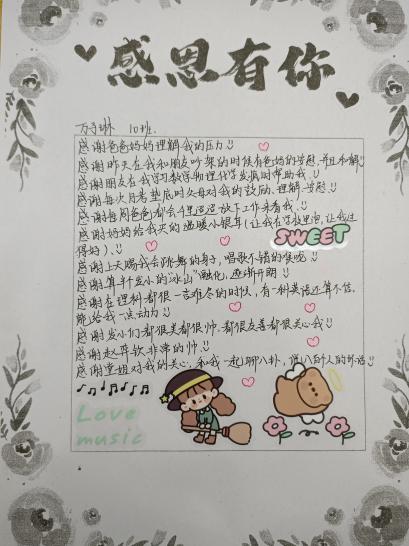 感恩有你
万子琳 10班.
感谢爸爸妈妈理解我的压力
感谢昨天在我和朋友吵架的时候有爸妈的安慰,并且和解
感谢朋友在我学习数学物理化学发疯时帮助我.
感谢每次月考垫底时父母对我的鼓励.理解.安慰.
感谢每周爸爸都会千里迢迢放下工作来看我.
感谢妈妈给我买的温暖小银耳(让我在学校里泡,让我过
得好).
SWEET
感谢上天赐我会跳舞的身子,唱歌不错的喉咙
感谢算半发小的"冰山"融化,逐渐开朗
感谢在理科都很一言难尽的时候,有一科英语还算不低,
能给我一点动力
感谢发小们都很美都很帅.都很友善都很关心我
感谢赵弈钦非常的帅
感谢堂姐对我的关心,和我一起聊八卦,说八的人的坏话
Love
music